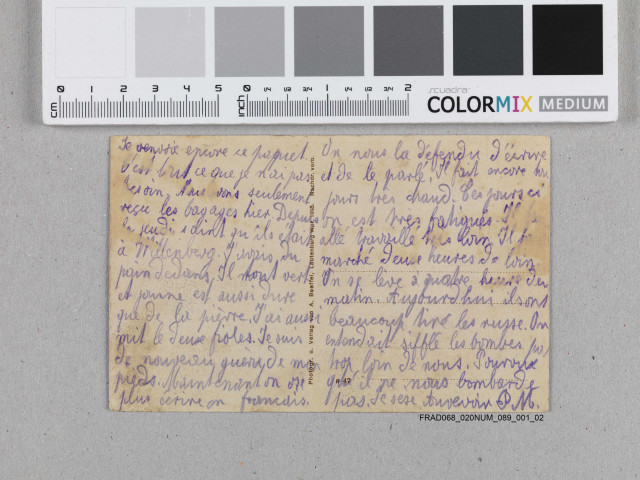 0 1 2 3 4 5
cm
0 1/4 1/2 3/4 1 1/4 1/2 3/4 2
inch
scuadra
COLORMIX MEDIUM
Je renvoie encore ce paquet
c'est tout ce que je n'ai pas
besoin. Nous avons seulement
reçu les bagages hier. Depuis
le jeudi saint qu'ils étais
à Willenberg. J'avais du
pain dedans. Il était vert
et jaune est aussi dure
que de la pierre. J'ai aussi
mit le deux fioles. Je suis
de nouveau queri de mes
pieds. Maintenant on ose
plus écrire on francais.
Photogr. u. Verlag von A. Boeffel, Lautenburg Wpr.
On nous la défendu d'écrire
et de le parlé. Il fait encore tou
jours très chaud. Ces jours ci
on est très fatigués.
allé travaille très loin. Il
marché deux heures de loin
On se lève à quatre heures du
matin. Aujourd'hui ils ont
beaucoup tiré les russe. On
entendait sifflé les bombes pas
trop loin de nous. Pourvue
qu'il ne nous bombarde
pas. Je sese Aurevoir P. M.
FRAD068_020NUM_089_001_02